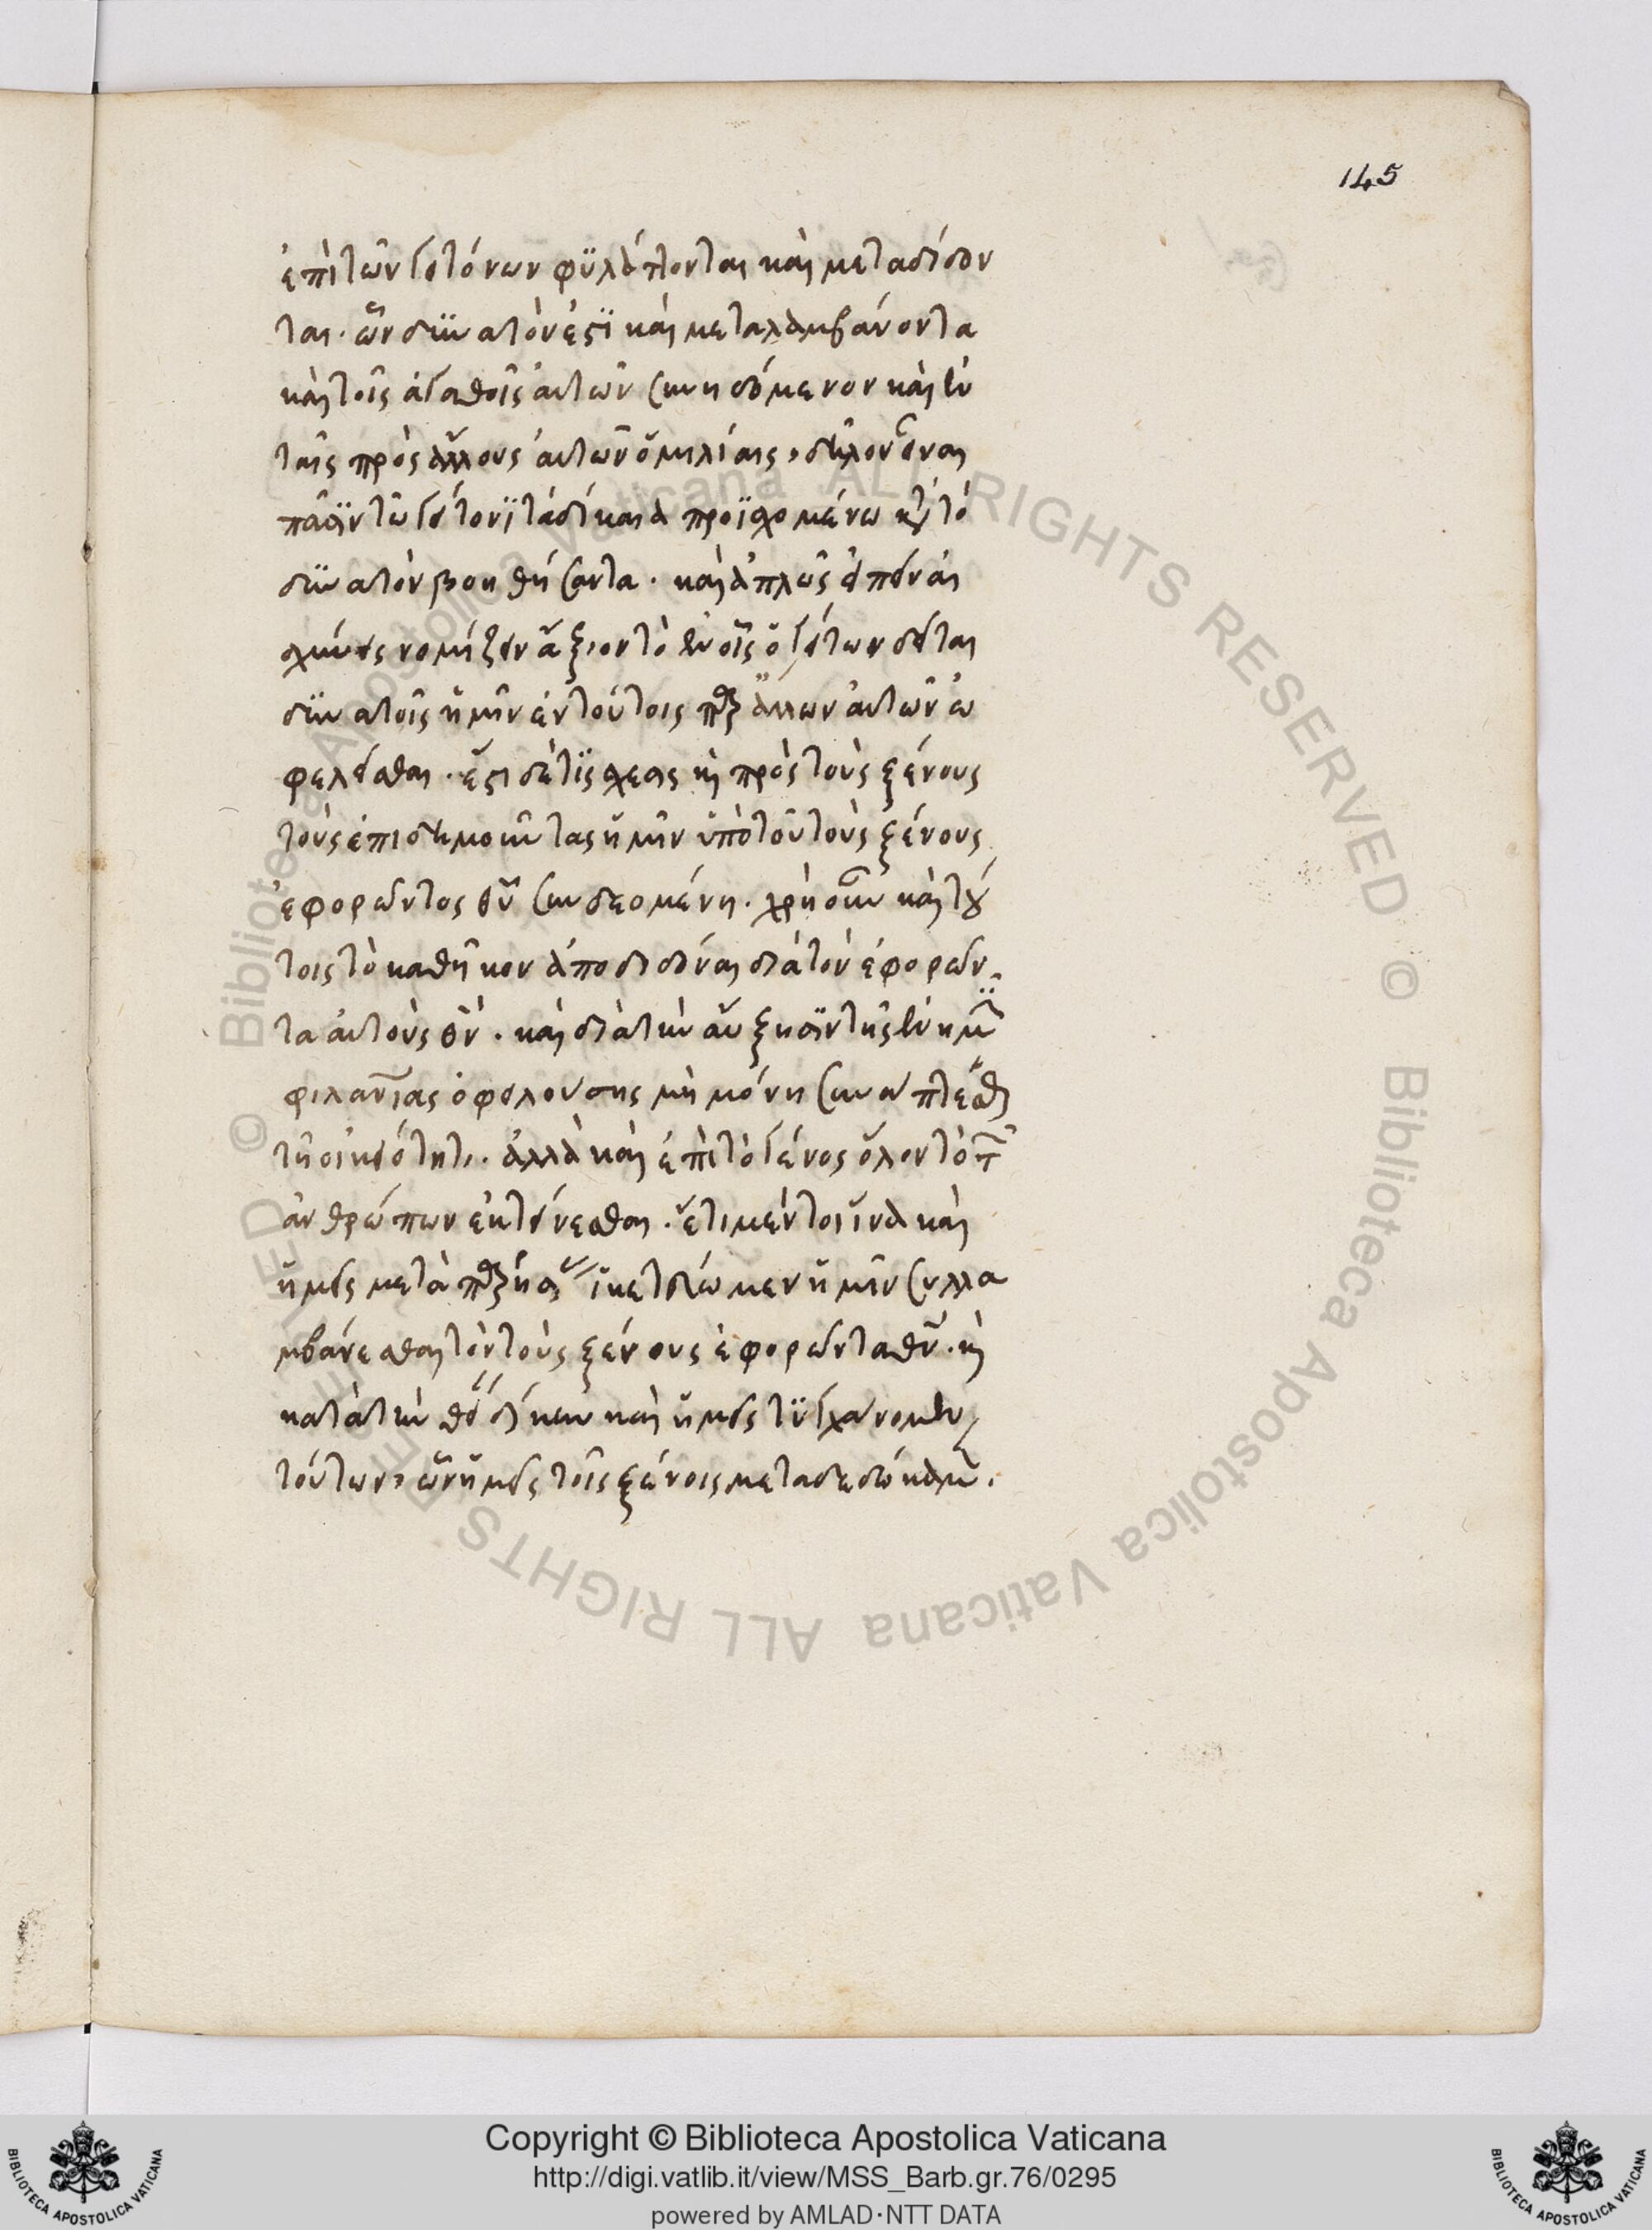 145
ἐπὶ τῶν γειτόνων φϋλάττονται καὶ μεταδίδον
ται. ὧν δϋνατὸν ἐστϊ καὶ μεταλαμβάνοντα
καὶ τοῖς ἀγαθοῖς αὐτῶν συνηδόμενον καὶ ἐν
ταῖς πρὸς ἄλλους αὐτῶν ὁμιλίαις, δῆλον εἶναι
πᾶσϊν τῷ γείτονϊ τὰ δίκαια προϊσχομένῳ κατὰ τὸ
δϋνατὸν βοηθήσαντα. καὶ ἁπλῶς εἰπεῖν
νομίζειν ἄξιον τὸ ἐν οἷς ὁ γείτων δεῖται
δϋνατοῖς ἡμῖν ἐν τούτοις παρ' ἄλλων αὐτῶν ὠ
φελεῖσθαι. ἔστι δὲ τϊς σχέσις καὶ πρὸς τοὺς ξένους
τοὺς ἐπιδημοῦντας ἡμῖν ὑπὸ τοῦ τοὺς ξένους
ἐφορῶντος θεοῦ συνδεομένη. χρὴ οὖν καὶ τού
τοις τὸ καθῆκον ἀποδιδόναι διὰ τὸν ἐφορῶν
τα αὐτοὺς θεόν. καὶ διὰ τὴν αὔξησϊν τῆς ἐν ἡμῖν
φιλανθρωπίας ὀφειλούσης μὴ μόνῃ συναπτεσθαι
τῇ οἰκειότητι. ἀλλὰ καὶ ἐπὶ τὸ γένος ὅλον τὸ τῶν
ἀνθρώπων ἐκτείνεσθαι. ἔτι μέντοι ἵνα καὶ
ἡμεῖς μετὰ παρρησίας ἱκετεύωμεν ἡμῖν συλλα
μβάνεσθαι τὸν τοὺς ξένους ἐφορῶντα θεόν. καὶ
κατὰ τὴν θείαν δίκην καὶ ἡμεῖς τϋγχάνομεν
τούτων, ὧν ἡμεῖς τοῖς ξένοις μεταδεδώκαμεν.
Copyright © Biblioteca Apostolica Vaticana
http://digi.vatlib.it/view/MSS_Barb.gr.76/0295
powered by AMLAD·NTT DATA
BIBLIOTECA APOSTOLICA VATICANA
BIBLIOTECA APOSTOLICA VATICANA
© Biblioteca Apostolica Vaticana ALL RIGHTS RESERVED © Biblioteca Apostolica Vaticana ALL RIGHTS RESERVED